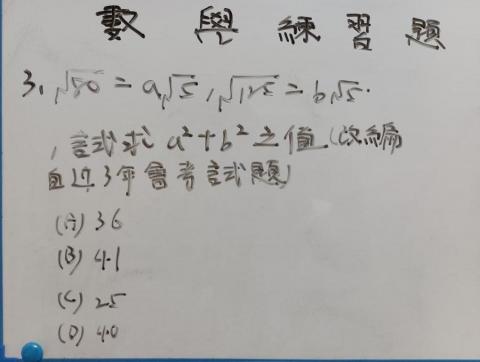 數學練習題
3. √80 = a√5, √125 = b√5.
, 試求 a²+b² 之值(改編
自近3年會考試題)
(A) 36
(B) 41
(C) 25
(D) 40